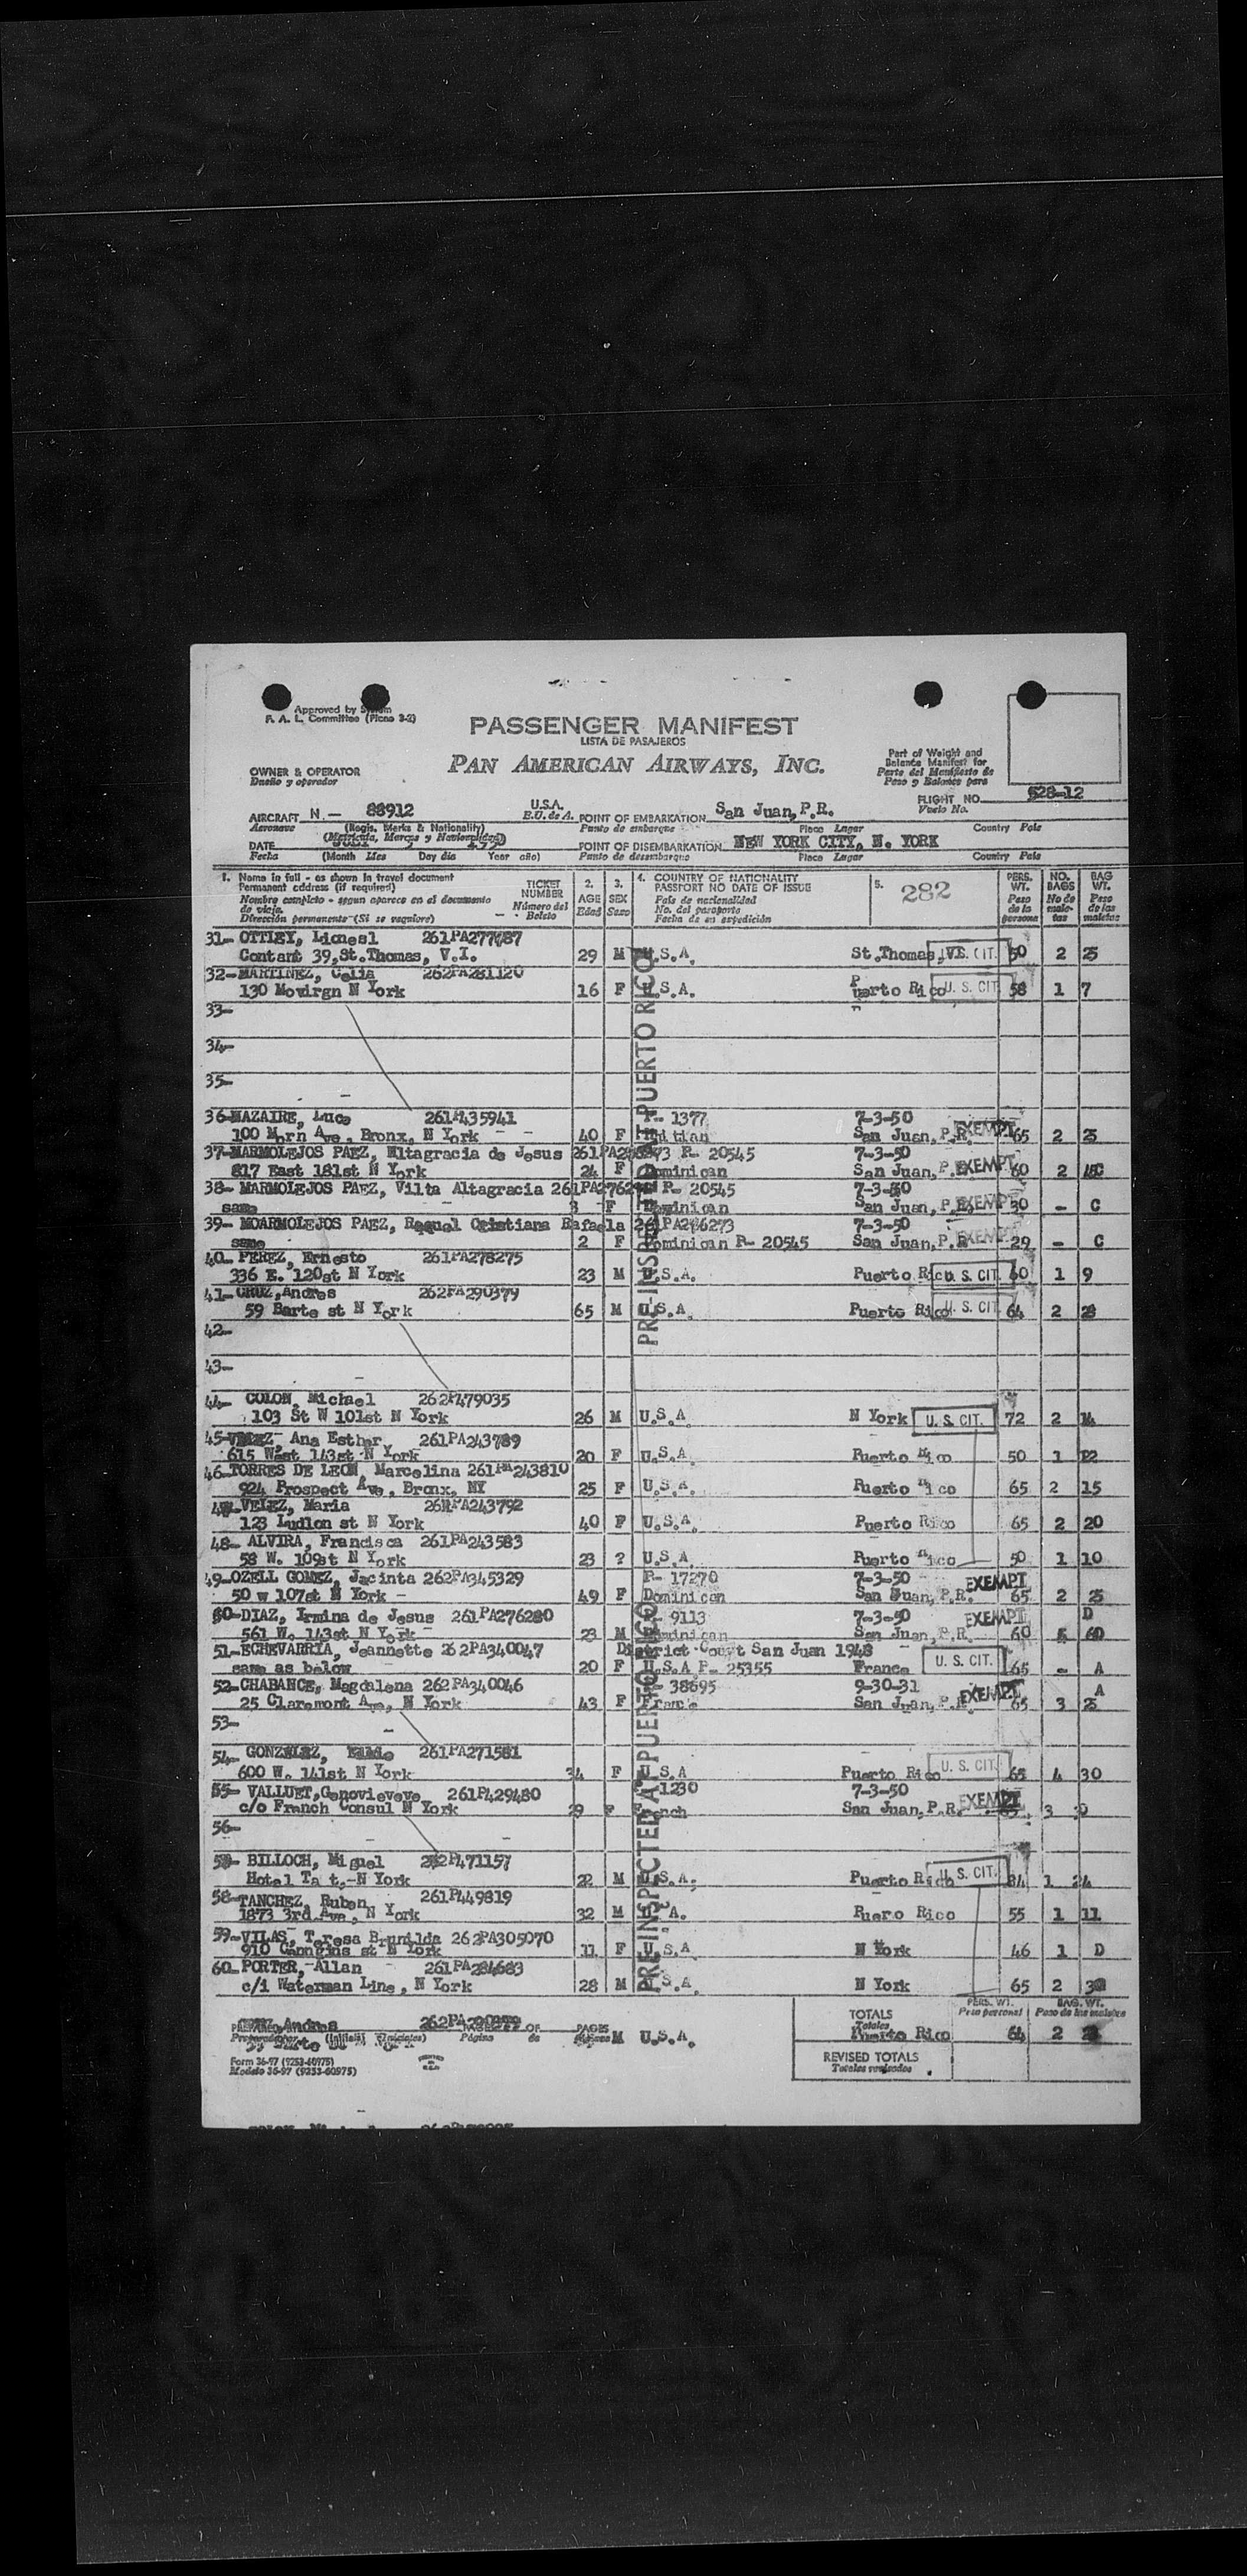 Approved by System
F. A. L. Committee (Picao 3-2)
PASSENGER MANIFEST
LISTA DE PASAJEROS
PAN AMERICAN AIRWAYS, INC.
Part of Weight and
Balance Manifest for
Parte del Manifiesto de
Peso y Balance para
OWNER & OPERATOR
Dueño y operador
FLIGHT NO. 628-12
Vuelo No.
AIRCRAFT N - 88912 U.S.A. POINT OF EMBARKATION San Juan, P.R.
Aeronave (Regis. Marks & Nationality) E.U. de A. Punto de embarque Place Lugar Country País
(Matricula, Marcas y Nacionalidad)
DATE JULY 1950 POINT OF DISEMBARKATION NEW YORK CITY, N. YORK
Fecha (Month Mes Day día Year año) Punto de desembarque Place Lugar Country País
1. Name in full - as shown in travel document
Permanent address (if required)
Nombre completo - segun aparece en el documento
de viaje.
Dirección permanente (Si se requiere)
TICKET
NUMBER
Número del
Boleto
2.
AGE
Edad
3.
SEX
Sexo
4. COUNTRY OF NATIONALITY
PASSPORT NO DATE OF ISSUE
País de nacionalidad
No. del pasaporte
Fecha de su expedición
5. 282
PERS.
WT.
Peso
de la
persona
NO.
BAGS
No de
male-
tas
BAG
WT.
Peso
de las
maletas
PRE-INSPECTED AT PUERTO RICO
31- OTTLEY, Lionesl
Contant 39, St. Thomas, V.I. 29 M U.S.A. St. Thomas, V.I. U.S. CIT. 2 25
32- MARTINEZ, Celia 262PA281120
130 Movirgn N York 16 F U.S.A. Puerto Rico U. S. CIT. 58 1 7
33-
34-
35-
36- MAZAIRE, Luce 261P435941 P- 1377 7-3-50
100 Morn Ave, Bronx, N York 40 F Haitian San Juan, P.R. EXEMPT 65 2 25
37- MARMOLEJOS PAEZ, Altagracia de Jesus R- 20545 7-3-50
817 East 181st N York 24 F Dominican San Juan, P.R. EXEMPT 60 2
38- MARMOLEJOS PAEZ, Vilta Altagracia R- 20545 7-3-50
same 3 F Dominican San Juan, P.R. EXEMPT 30 - C
39- MOARMOLEJOS PAEZ, Raquel Cristiana Rafaela 261PA276273 7-3-50
same 2 F Dominican R- 20545 San Juan, P.R. EXEMPT 29 - C
40- PEREZ, Ernesto 261PA278275
336 E. 120st N York 23 M U.S.A. Puerto Rico U. S. CIT. 60 1 9
41- CRUZ, Andres 262PA290379
59 Barte st N York 65 M U.S.A. Puerto Rico U. S. CIT. 64 2
42-
43-
44- COLON, Michael 262P479035
103 St W 101st N York 26 M U.S.A N York U. S. CIT. 72 2 14
45- VELEZ Ana Esther 261PA243789
615 West 143st N York 20 F U.S.A Puerto Rico 50 1 12
46- TORRES DE LEON, Marcelina 261PA243810
924 Prospect Ave, Bronx, NY 25 F U.S.A. Puerto Rico 65 2 15
47- VELEZ, Maria 261PA243792
123 Ludlon st N York 40 F U.S.A. Puerto Rico 65 2 20
48- ALVIRA, Francisca 261PA243583
58 W. 109st N York 23 ? U.S.A. Puerto Rico 50 1 10
49- OZELL GOMEZ, Jacinta 262PA345329 R- 17270 7-3-50
50 w 107st N York - 49 F Dominican San Juan, P.R. EXEMPT 65 2 25
50- DIAZ, Irmina de Jesus 261PA276280 9113 7-3-50 D
561 W. 143st N York 23 M Dominican San Juan, P.R. EXEMPT 60 5 60
51- ECHEVARRIA, Jeannette 262PA340047 District Court San Juan 1948
same as below 20 F U.S.A P- 25355 France U. S. CIT. 65 - A
52- CHABANCE, Magdalena 262PA340046 38695 9-30-31 A
25 Claremont Ave, N York 43 F France San Juan, P.R. EXEMPT 65 3 25
53-
54- GONZELEZ, 261PA271581
600 W. 141st N York 34 F U.S.A Puerto Rico U. S. CIT. 65 4 30
55- VALLUET, Genovieveve 261P429480 1230 7-3-50
c/o French Consul N York 29 F French San Juan, P.R. EXEMPT 3
56-
57- BILLOCH, Miguel 262P471157
Hotel Taft,-N York 22 M U.S.A. Puerto Rico U. S. CIT. 84 1 24
58- TANCHEZ, Ruben 261P449819
1873 3rd Ave, N York 32 M Ruero Rico 55 1 11
59- VILAS, Teresa Brunilda 262PA305070
910 st N York 11 F U.S.A N York 46 1 D
60- PORTER, Allan 261PA284683
c/i Waterman Line, N York 28 M U.S.A. N York 65 2
Andres
(Initials) (Iniciales) Página de PAGES M U.S.A.
PERS. WT. BAG. WT.
Peso personal Peso de las maletas
TOTALS
Totales
Puerto Rico 64 2
REVISED TOTALS
Totales revisados
Form 36-97 (9253-60975)
Modelo 36-97 (9253-60975)